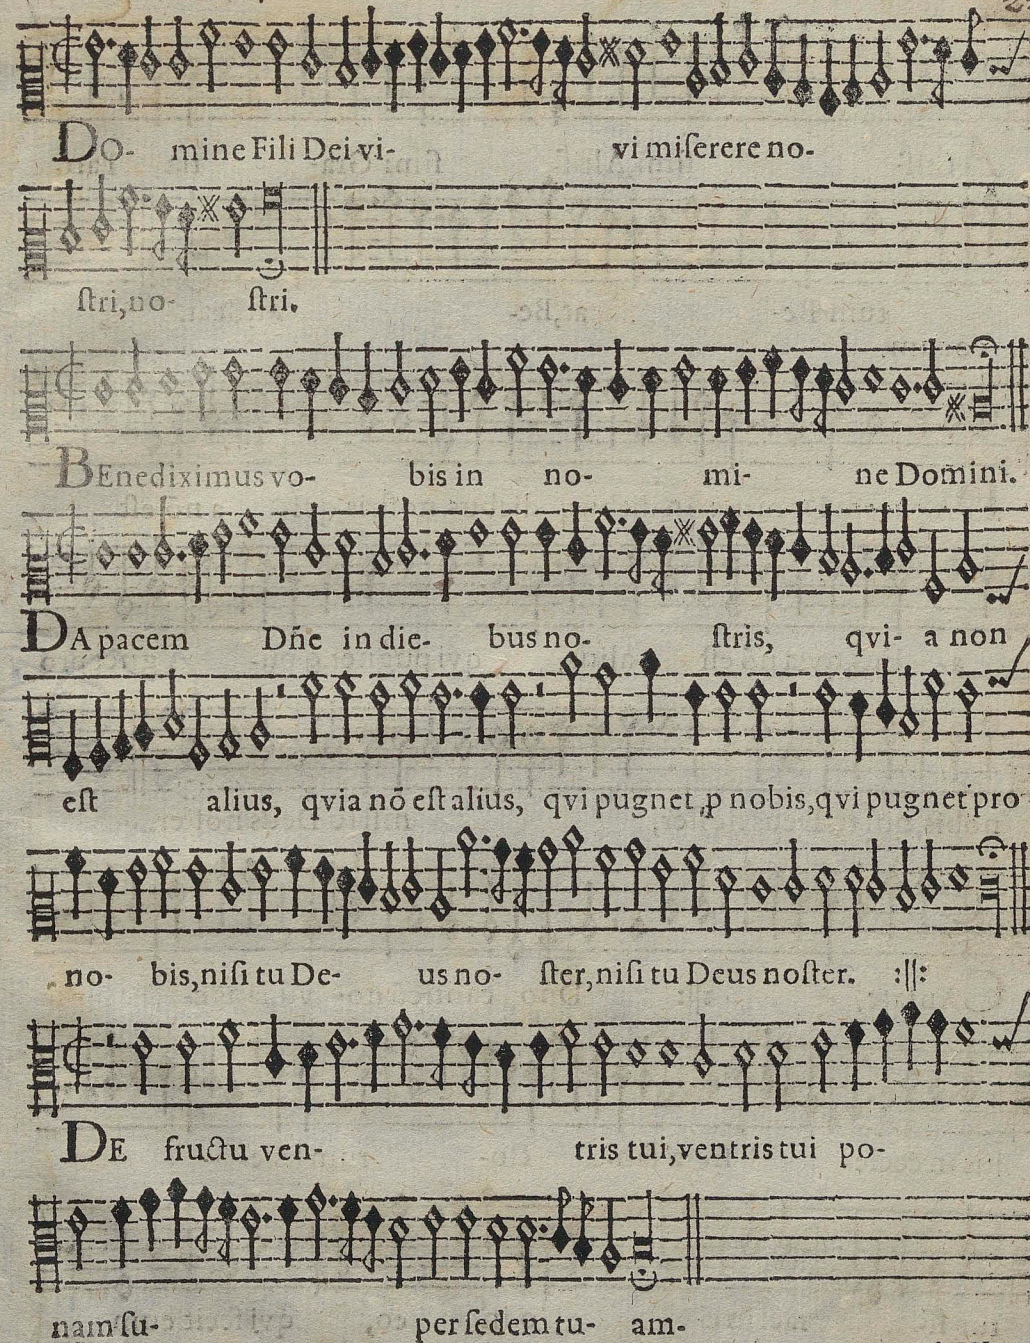 Do- mine Fili Dei vi- vi miſerere no-
ſtri, no- ſtri.
BEnediximus vo- bis in no- mi- ne Domini.
DA pacem Dñe in die- bus no- ſtris, qvi- a non
eſt alius, qvia nō eſt alius, qvi pugnet ꝓ nobis, qvi pugnet pro
no- bis, niſi tu De- us no- ſter, niſi tu Deus noſter. :||:
DE fructu ven- tris tui, ventris tui po-
nam ſu- per ſedem tu- am.